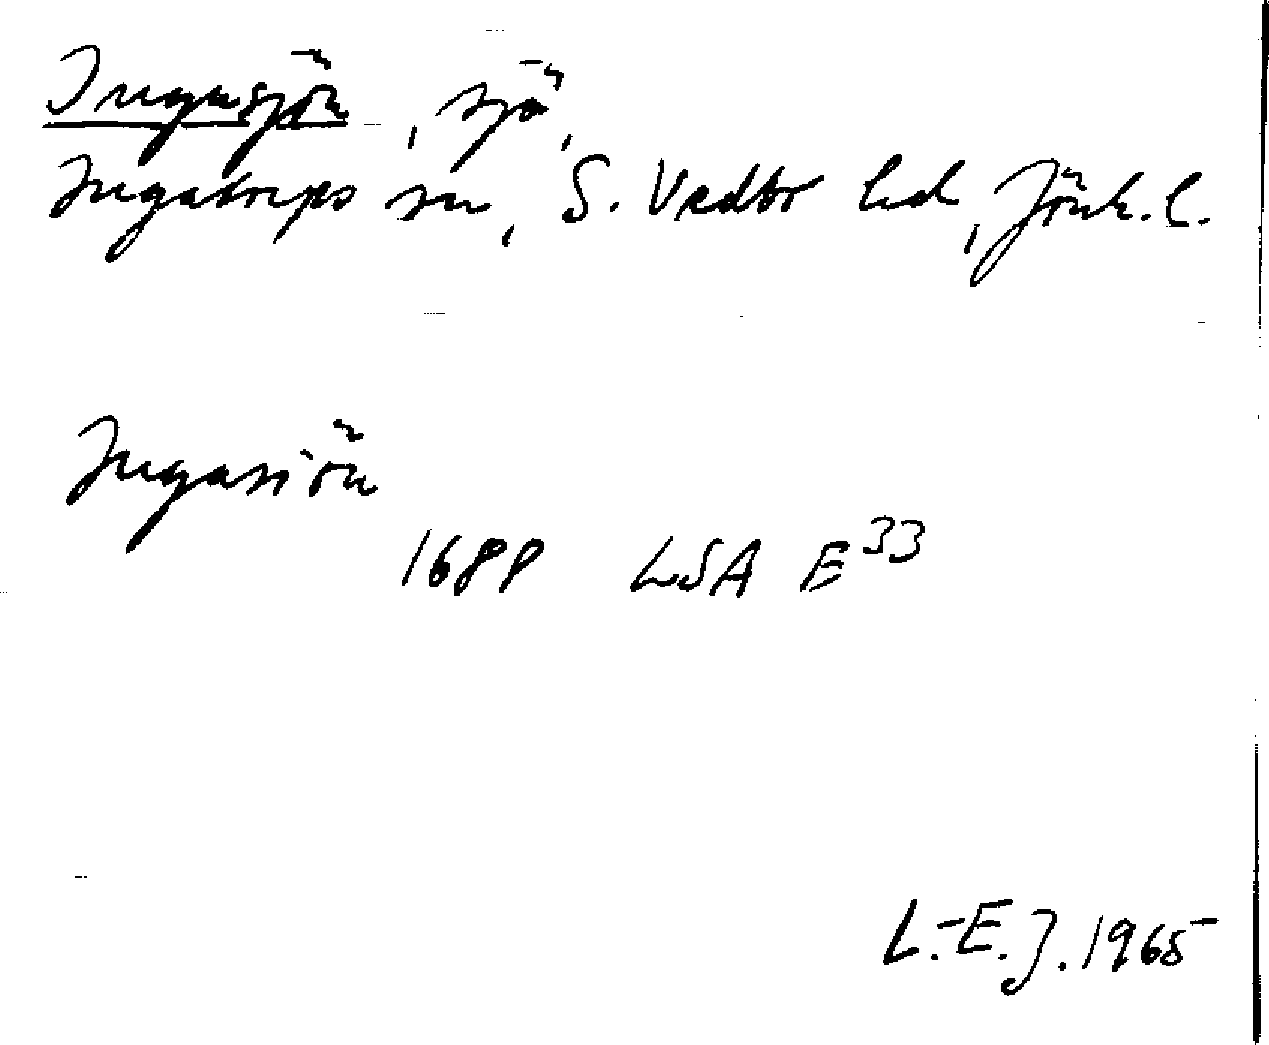 Ingasjön, sjö,
Ingatorps sn, S. Vedbo hd, Jönk. l.
Ingasiön
1688 LSA E 33
L.-E. J. 1965